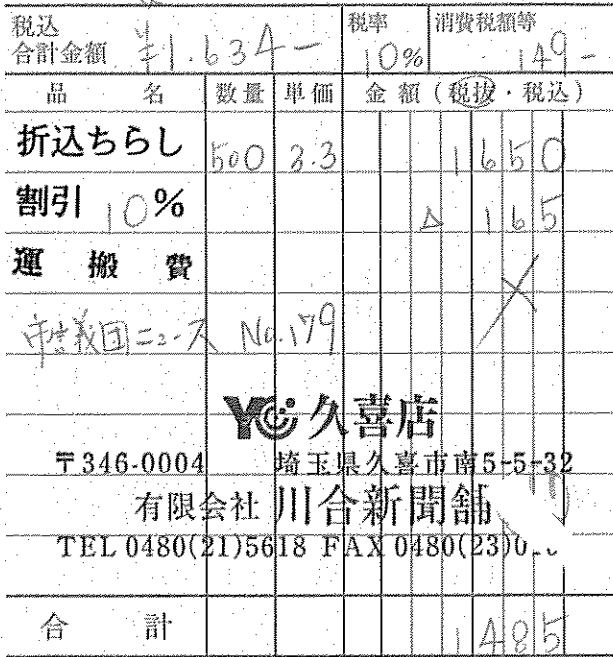 税込 税率 消費税額等
合計金額 ¥1.634- 10% 149-
品名 数量 単価 金額(税抜・税込)
折込ちらし 500 3.3 1650
割引 10% △ 165
運搬費
団ニュース No.179
YC 久喜店
〒346-0004 埼玉県久喜市南5-5-32
有限会社 川合新聞舗
TEL 0480(21)5618 FAX 0480(23)0
合計 1485